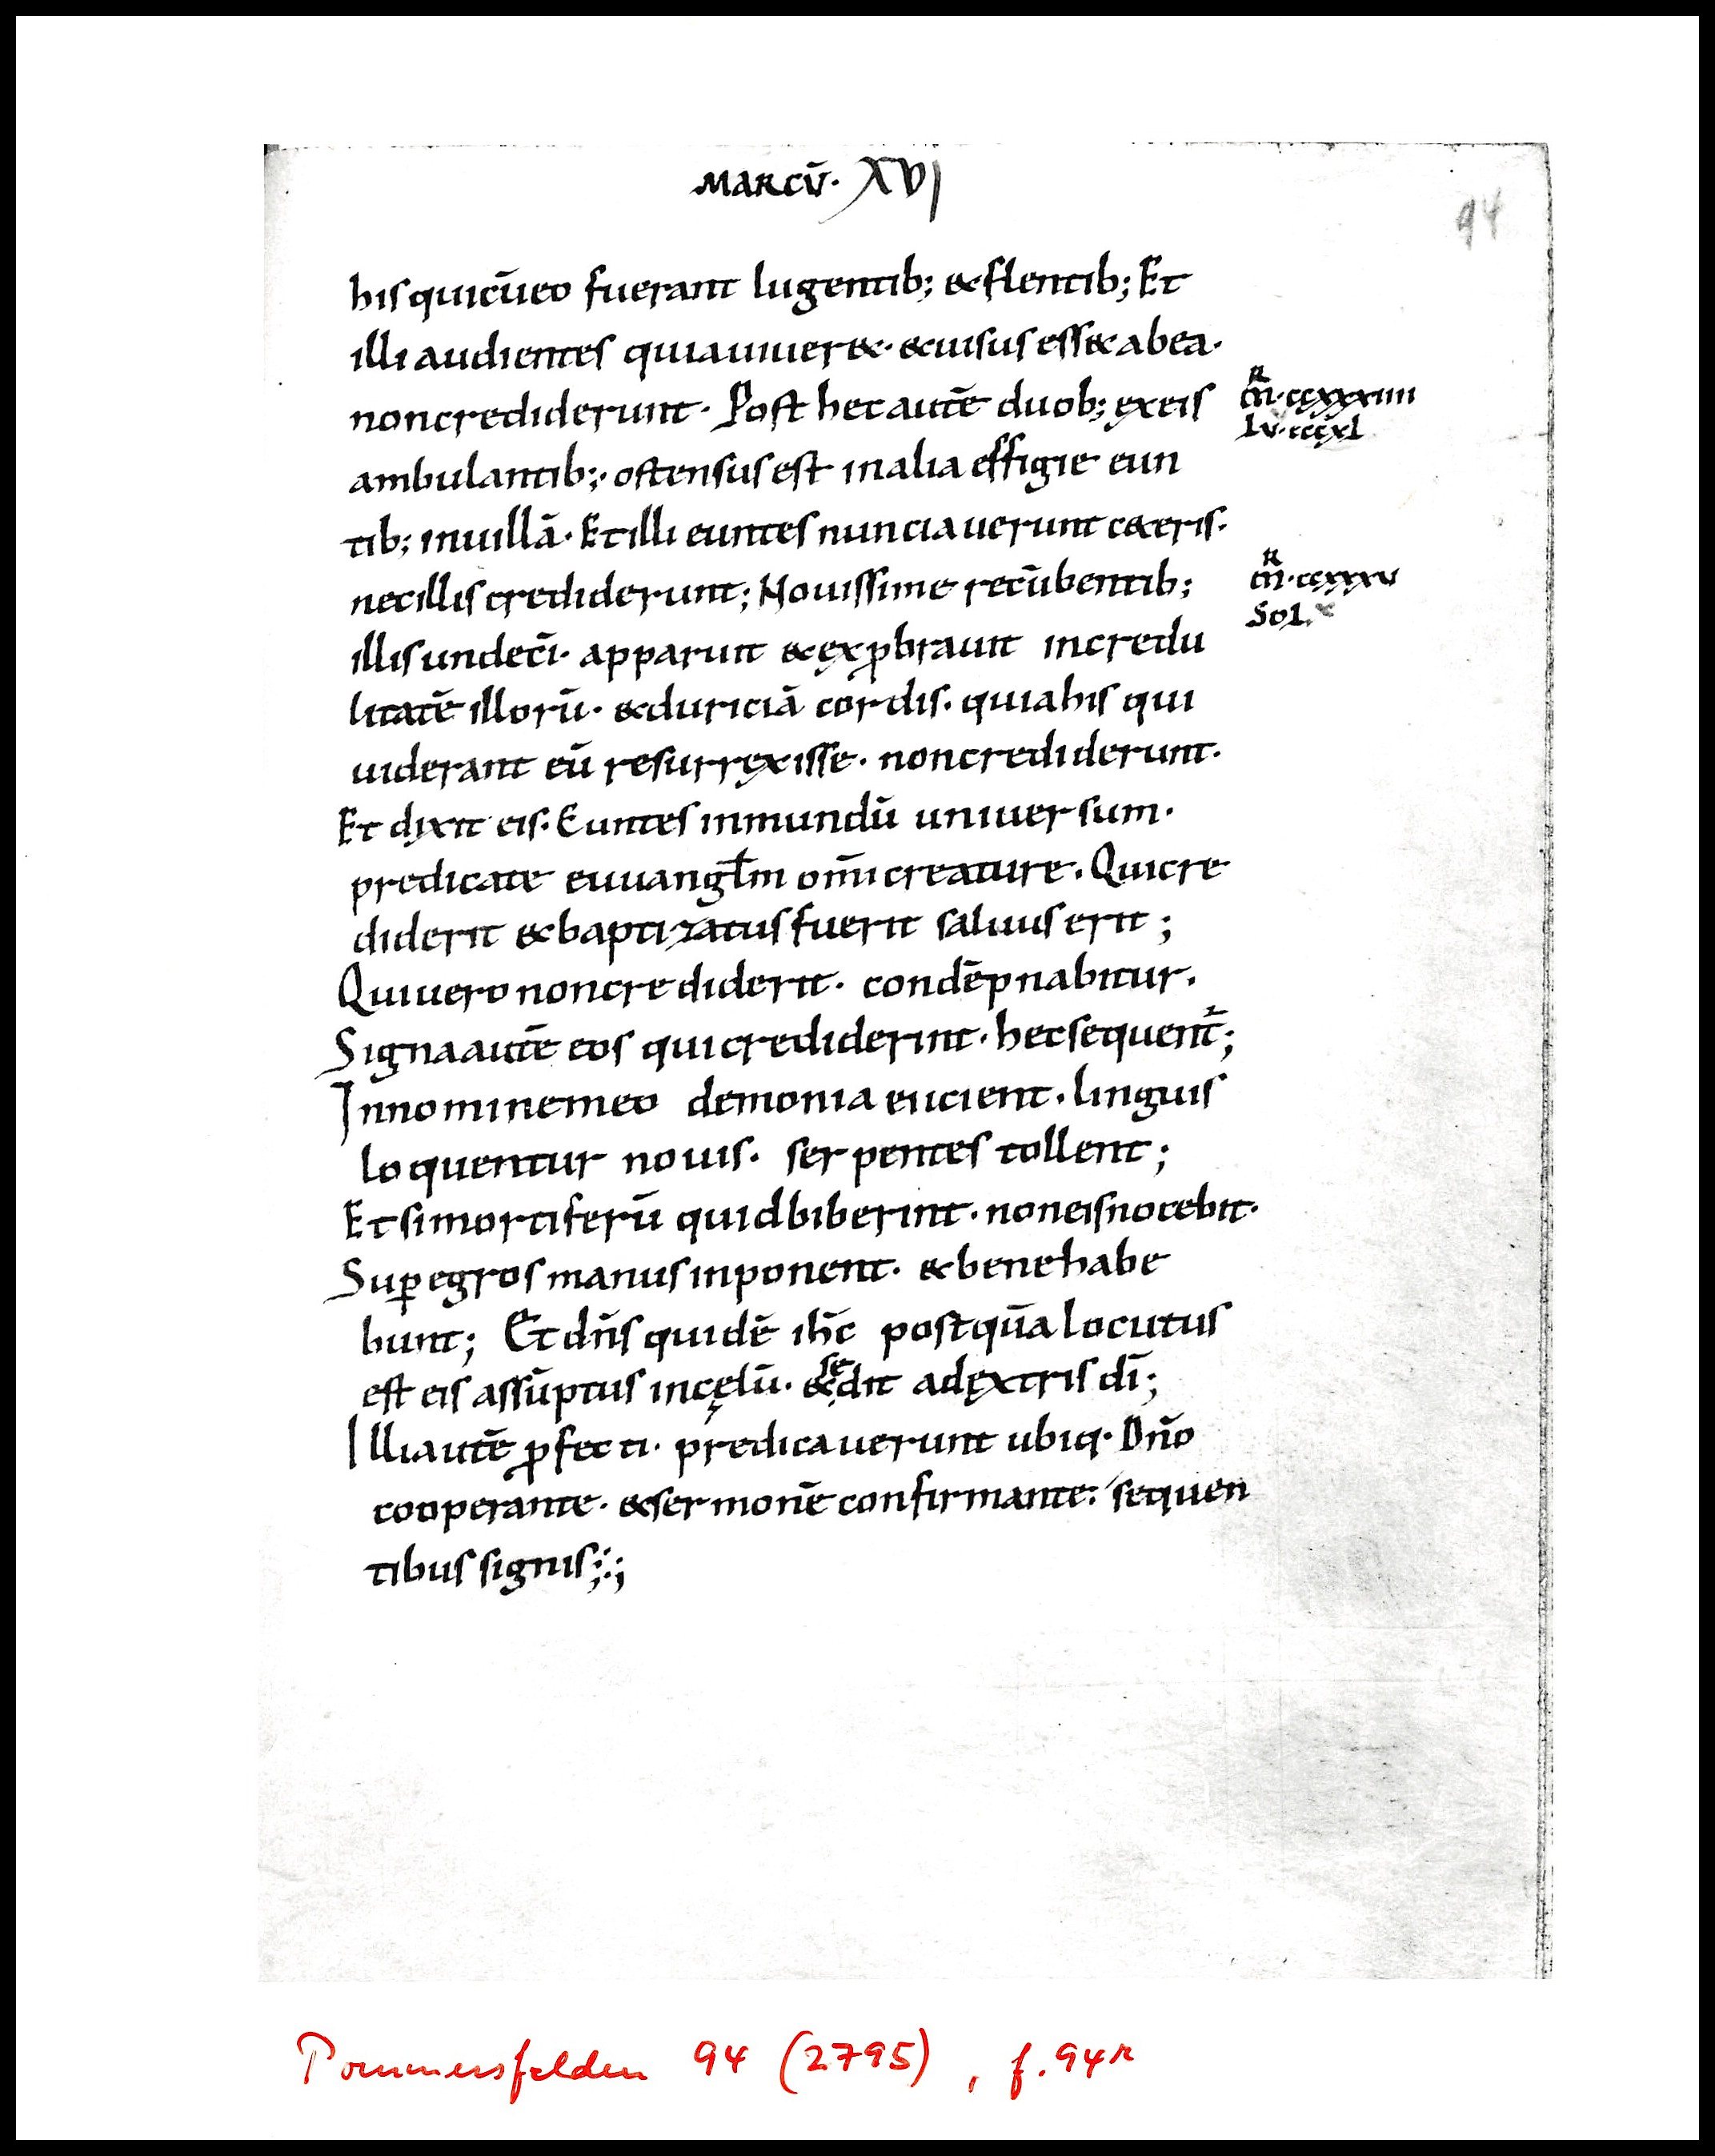 MARCŪ· XVI
94
his qui cū eo fuerant lugentib; & flentib; Et
illi audientes quia uiuer&· & uisus ess& ab ea·
non crediderunt· Post hec autē duob; ex eis
m̄·ccxxxiiii
lv·cccxl
ambulantib;· ostensus est in alia effigie eun
tib; in uillā· Et illi euntes nunciauerunt c&eris·
nec illis crediderunt; Nouissime recūbentib;
m̄·ccxxxv
Sol.x
illis undecī· apparuit & exꝓbrauit incredu
litatē illorū· & duriciā cordis. quia his qui
uiderant eū resurrexisse· non crediderunt·
Et dixit eis· Euntes in mundū uniuersum·
predicate euuangłm om̄i creature. Qui cre
diderit & baptizatus fuerit saluus erit;
Qui uero non crediderit· condēpnabitur.
Signa autē eos qui crediderint· hec sequent̄²;
In nomine meo demonia eiicient· linguis
loquentur nouis· serpentes tollent;
Et si mortiferū quid biberint· non eis nocebit·
Suꝑ egros manus inponent· & bene habe
bunt; Et dn̄s quidē ih̄c postqūa locutus
est eis assūptus in cęlū· & sedit a dextris dī;
Illi autē ꝓfecti· predicauerunt ubiq· Dn̄o
cooperante· & sermonē confirmante: sequen
tibus signis;:;
Pommersfelden 94 (2795), f. 94r